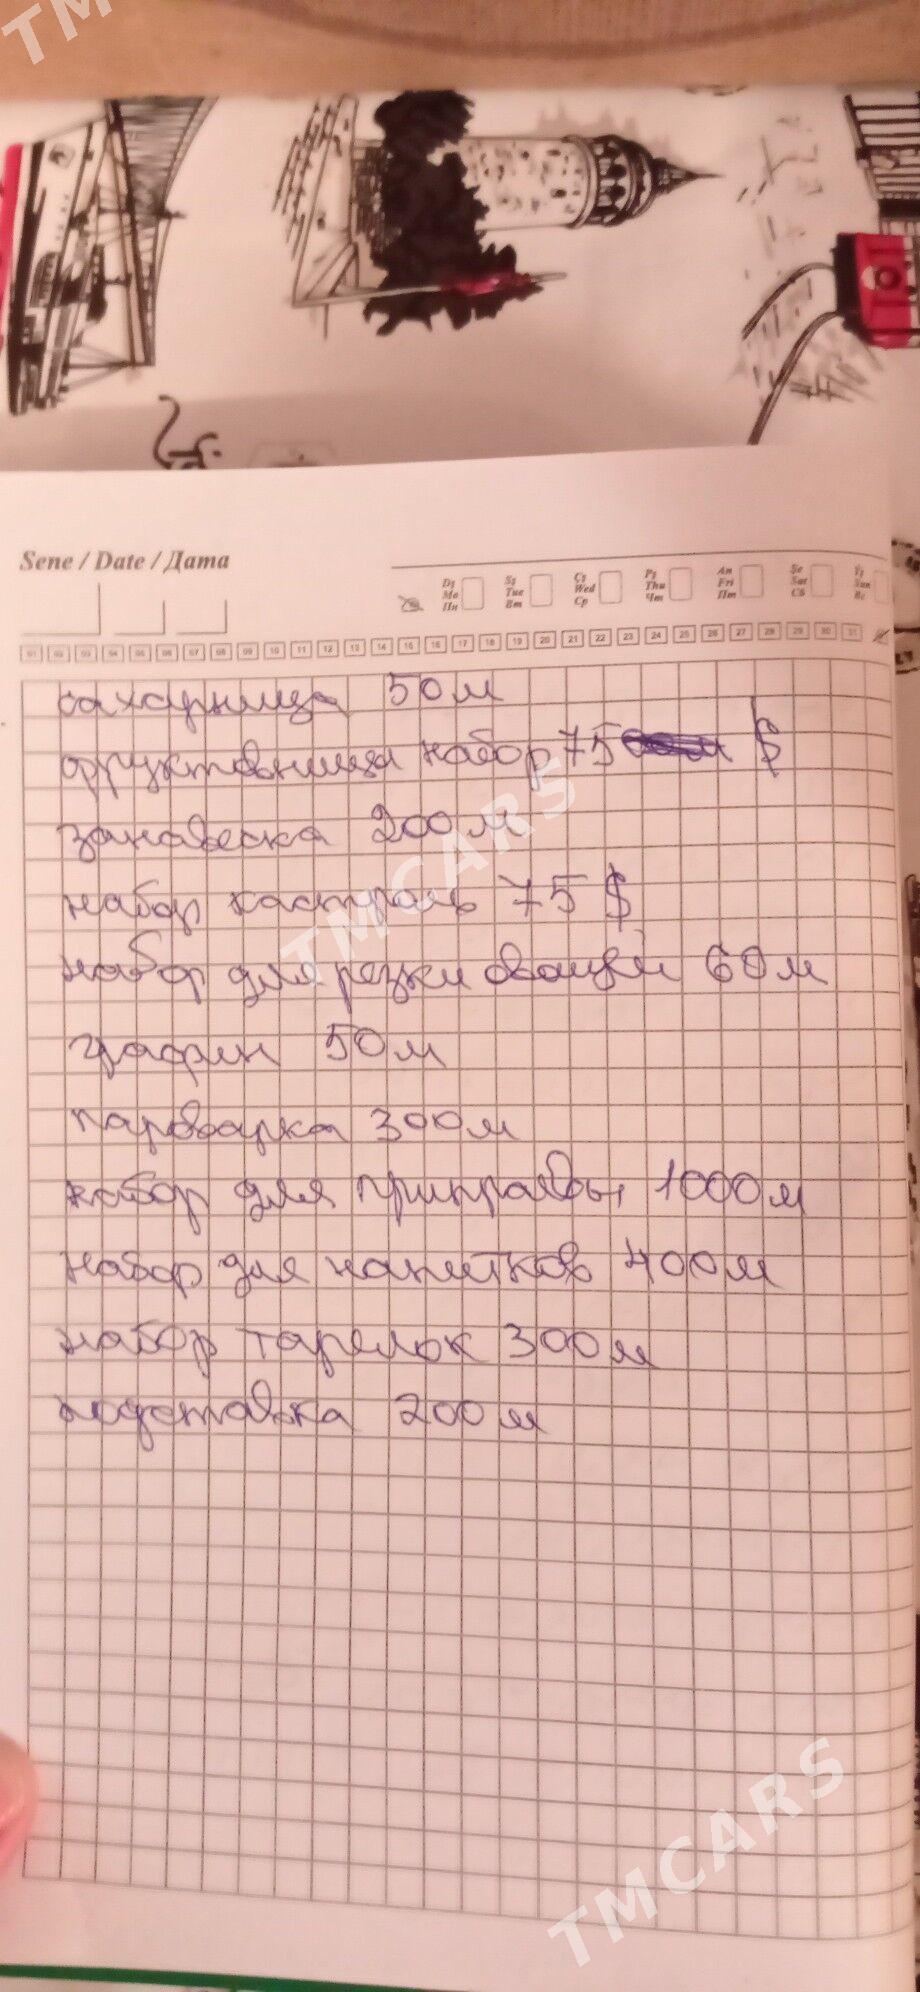 TMCARS
Sene / Date / Дата
Dş Sş Çş Pş An Şe Ýş
Mo Tue Wed Thu Fri Sat Sun
Пн Вт Ср Чт Пт Сб Вс
01 02 03 04 05 06 07 08 09 10 11 12 13 14 15 16 17 18 19 20 21 22 23 24 25 26 27 28 29 30 31
сахарница 50м
фруктовница набор 75 $
занавеска 200м
TMCARS
набор кастрюль 75 $
набор для резки овощей 60м
графин 50м
пароварка 300м
набор для приправы 1000м
набор для напитков 400м
набор тарелок 300м
подставка 200м
TMCARS